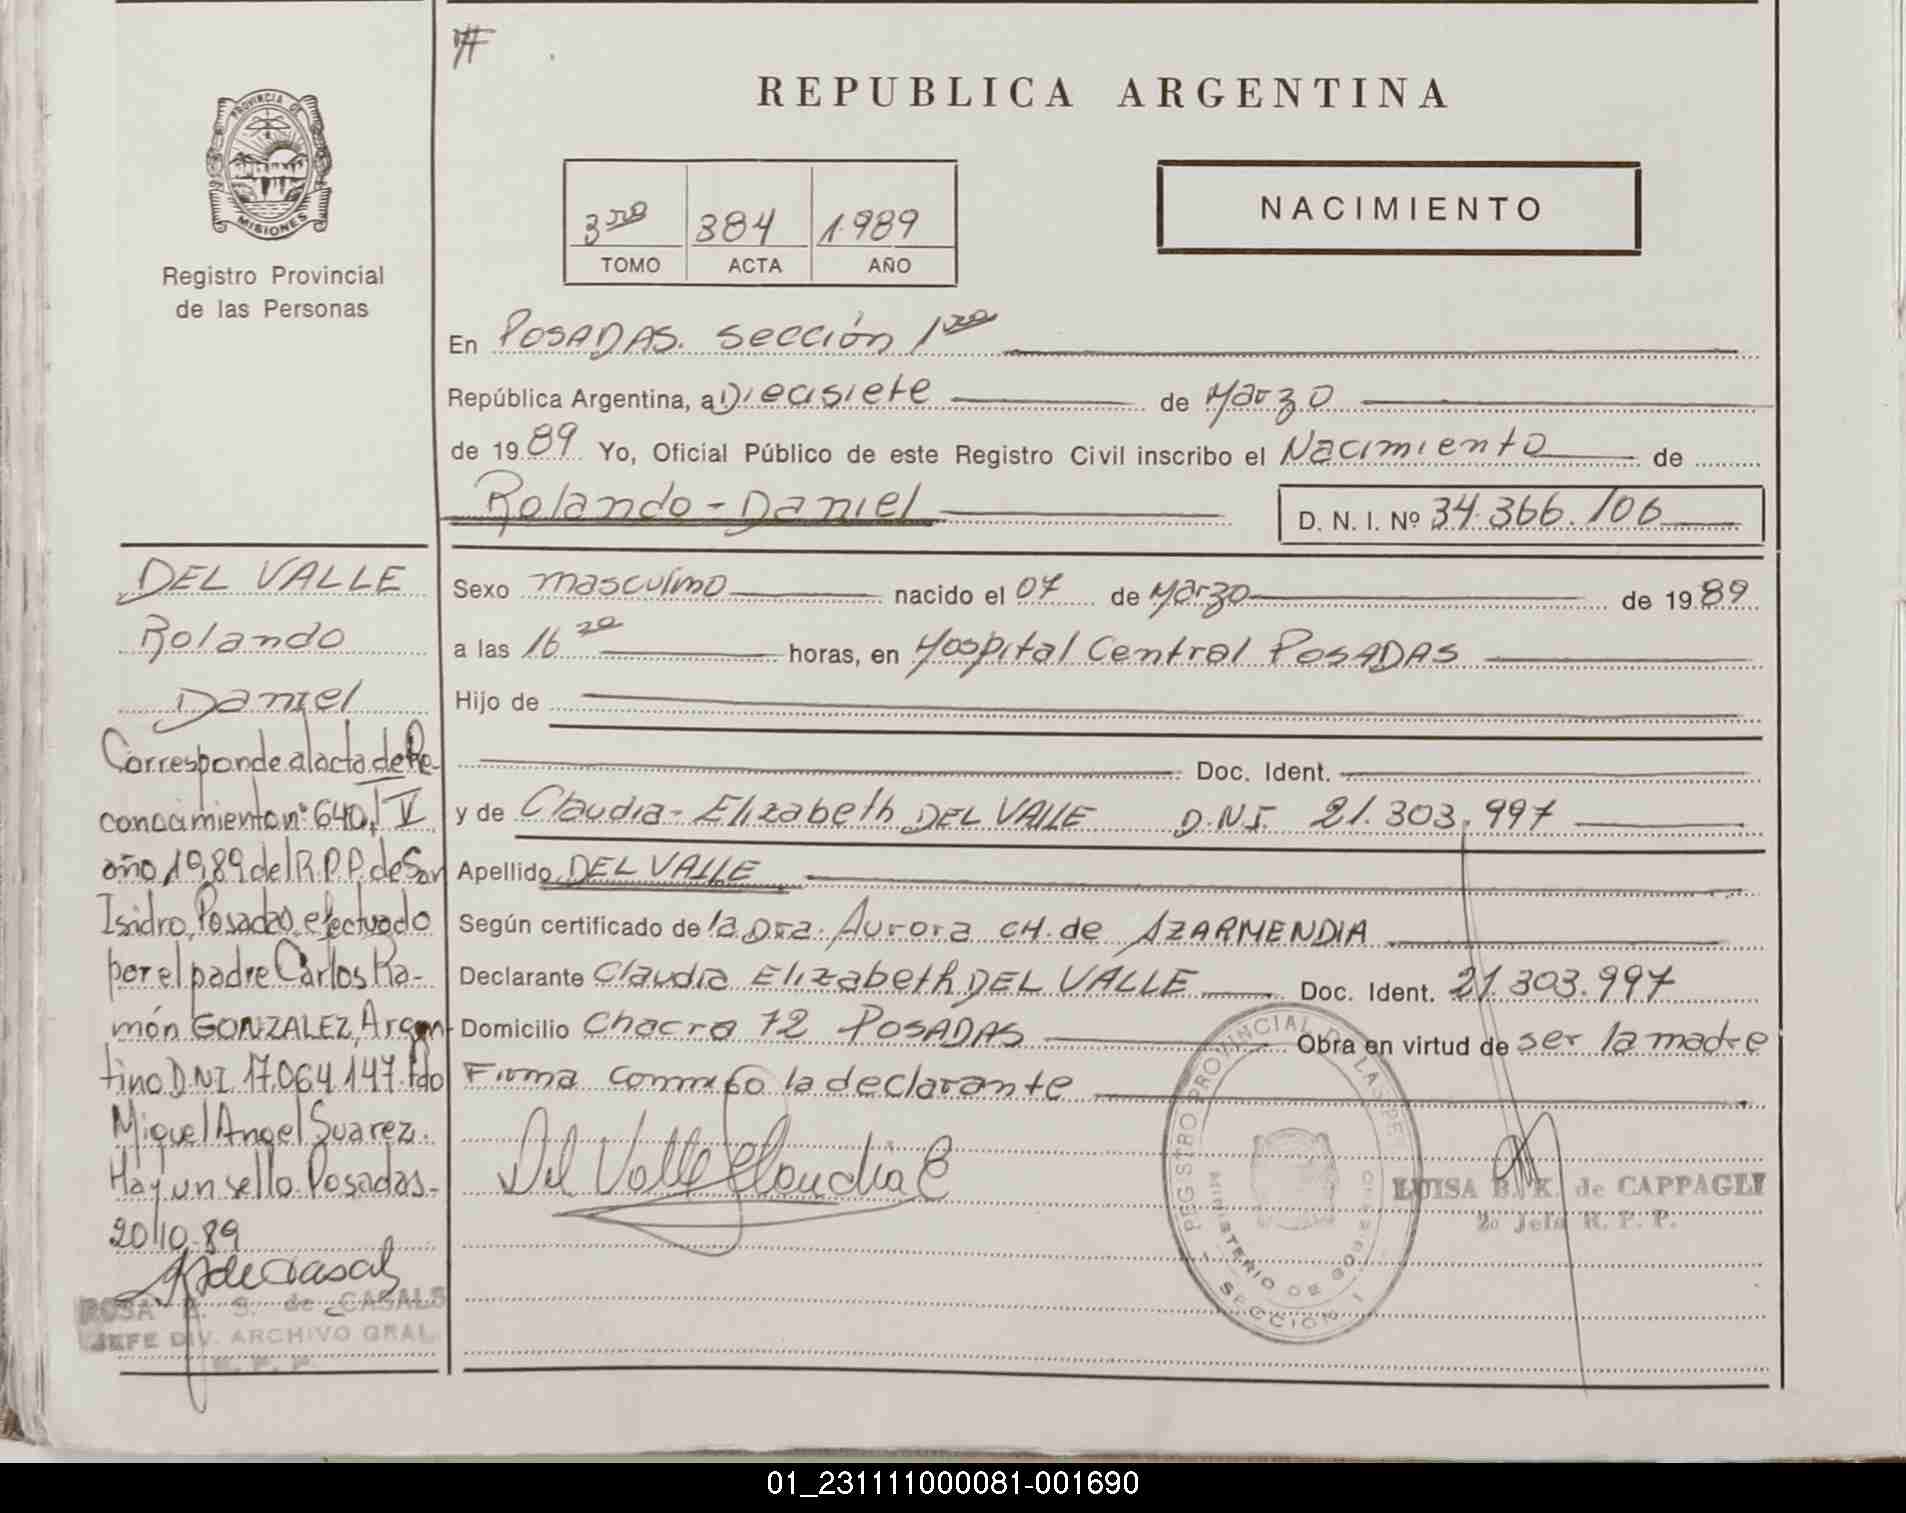 REPUBLICA ARGENTINA
PROVINCIA DE
MISIONES
Registro Provincial
de las Personas
3ro 384 1.989
TOMO ACTA AÑO
NACIMIENTO
En POSADAS. sección 1ra
República Argentina, a Diecisiete de Marzo
de 19 89 Yo, Oficial Público de este Registro Civil inscribo el Nacimiento de
Rolando - Daniel
D. N. I. Nº 34.366.106
Sexo masculino nacido el 07 de Marzo de 19 89
a las 16 20 horas, en Hospital Central POSADAS
Hijo de
Doc. Ident.
y de Claudia - Elizabeth DEL VALLE D.N.I. 21.303.997
Apellido DEL VALLE
Según certificado de la Dra. Aurora CH. de AZARMENDIA
Declarante Claudia Elizabeth DEL VALLE Doc. Ident. 21.303.997
Domicilio Chacra 72 POSADAS Obra en virtud de ser la madre
Firma conmigo la declarante
Del Valle Claudia E
REGISTRO PROVINCIAL DE LAS PE
MINISTERIO DE GOBIERNO
SECCION 1
LUISA B. K. de CAPPAGLI
2o Jefa R. P. P.
DEL VALLE
Rolando
Daniel
Corresponde al acta de Re-
conocimiento nº 640, T V
año 1989 del R.P.P. de San
Isidro, Posadas, efectuado
por el padre Carlos Ra-
món GONZALEZ, Argen-
tino D.N.I. 17.064.147. Fdo
Miguel Angel Suarez.
Hay un sello. Posadas-
20/10-89
ROSA S. de CASALS
JEFE DIV. ARCHIVO GRAL.
R. P. P.
01_231111000081-001690